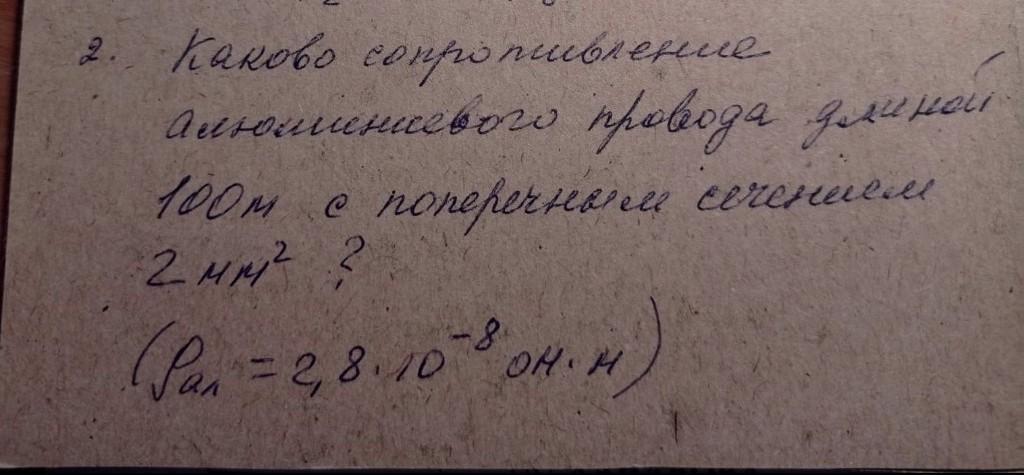 2. Каково сопротивление
алюминиевого провода длиной
100м с поперечным сечением
2 мм² ?
(ρал = 2,8·10⁻⁸ ом·м)